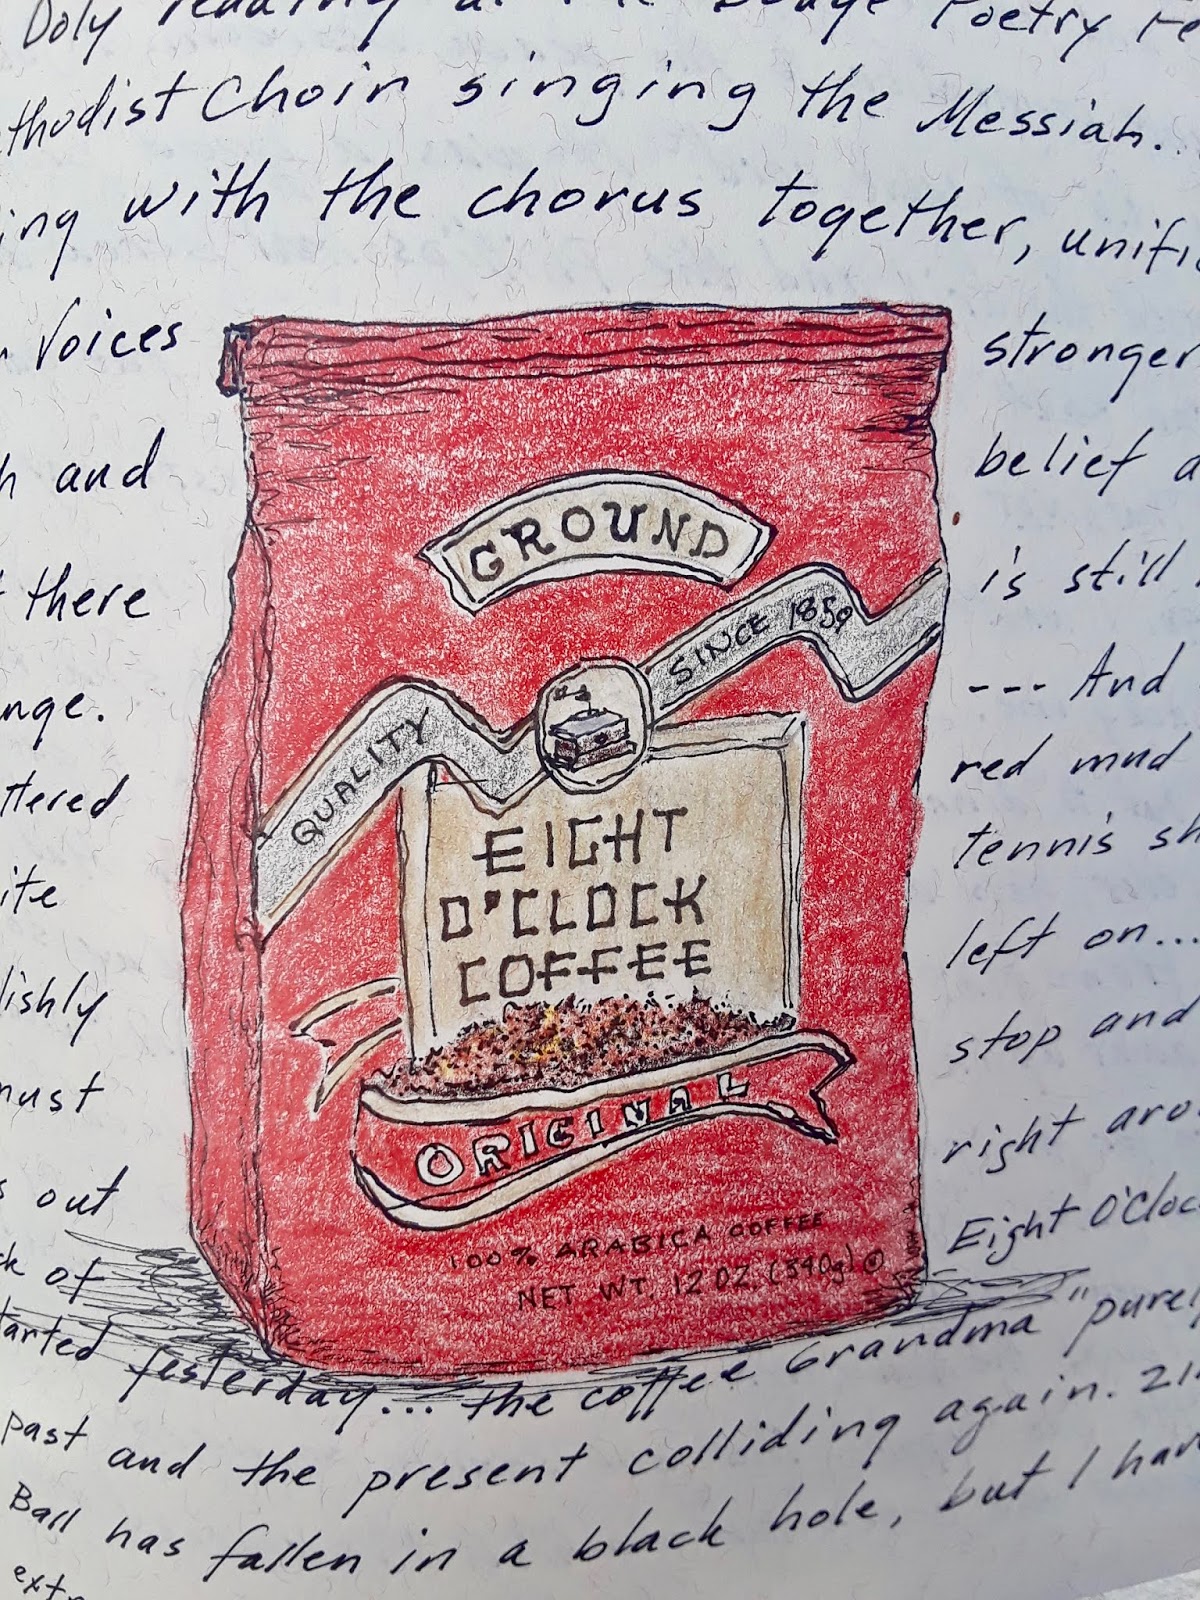 Doly reading at the Poetry Fe
thodist Choir singing the Messiah.
ing with the chorus together, unific
Voices stronger
h and belief a
there is still
nge. --- And
ttered red mud
ite tennis sh
lishly left on...
must stop and
s out right aro
k of Eight O'Cloc
tarted yesterday... the coffee Grandma "pure
past and the present colliding again. 21
Ball has fallen in a black hole, but I hav
extr
GROUND
QUALITY SINCE 1859
EIGHT
O'CLOCK
COFFEE
ORIGINAL
100% ARABICA COFFEE
NET WT. 12 OZ. (340g)